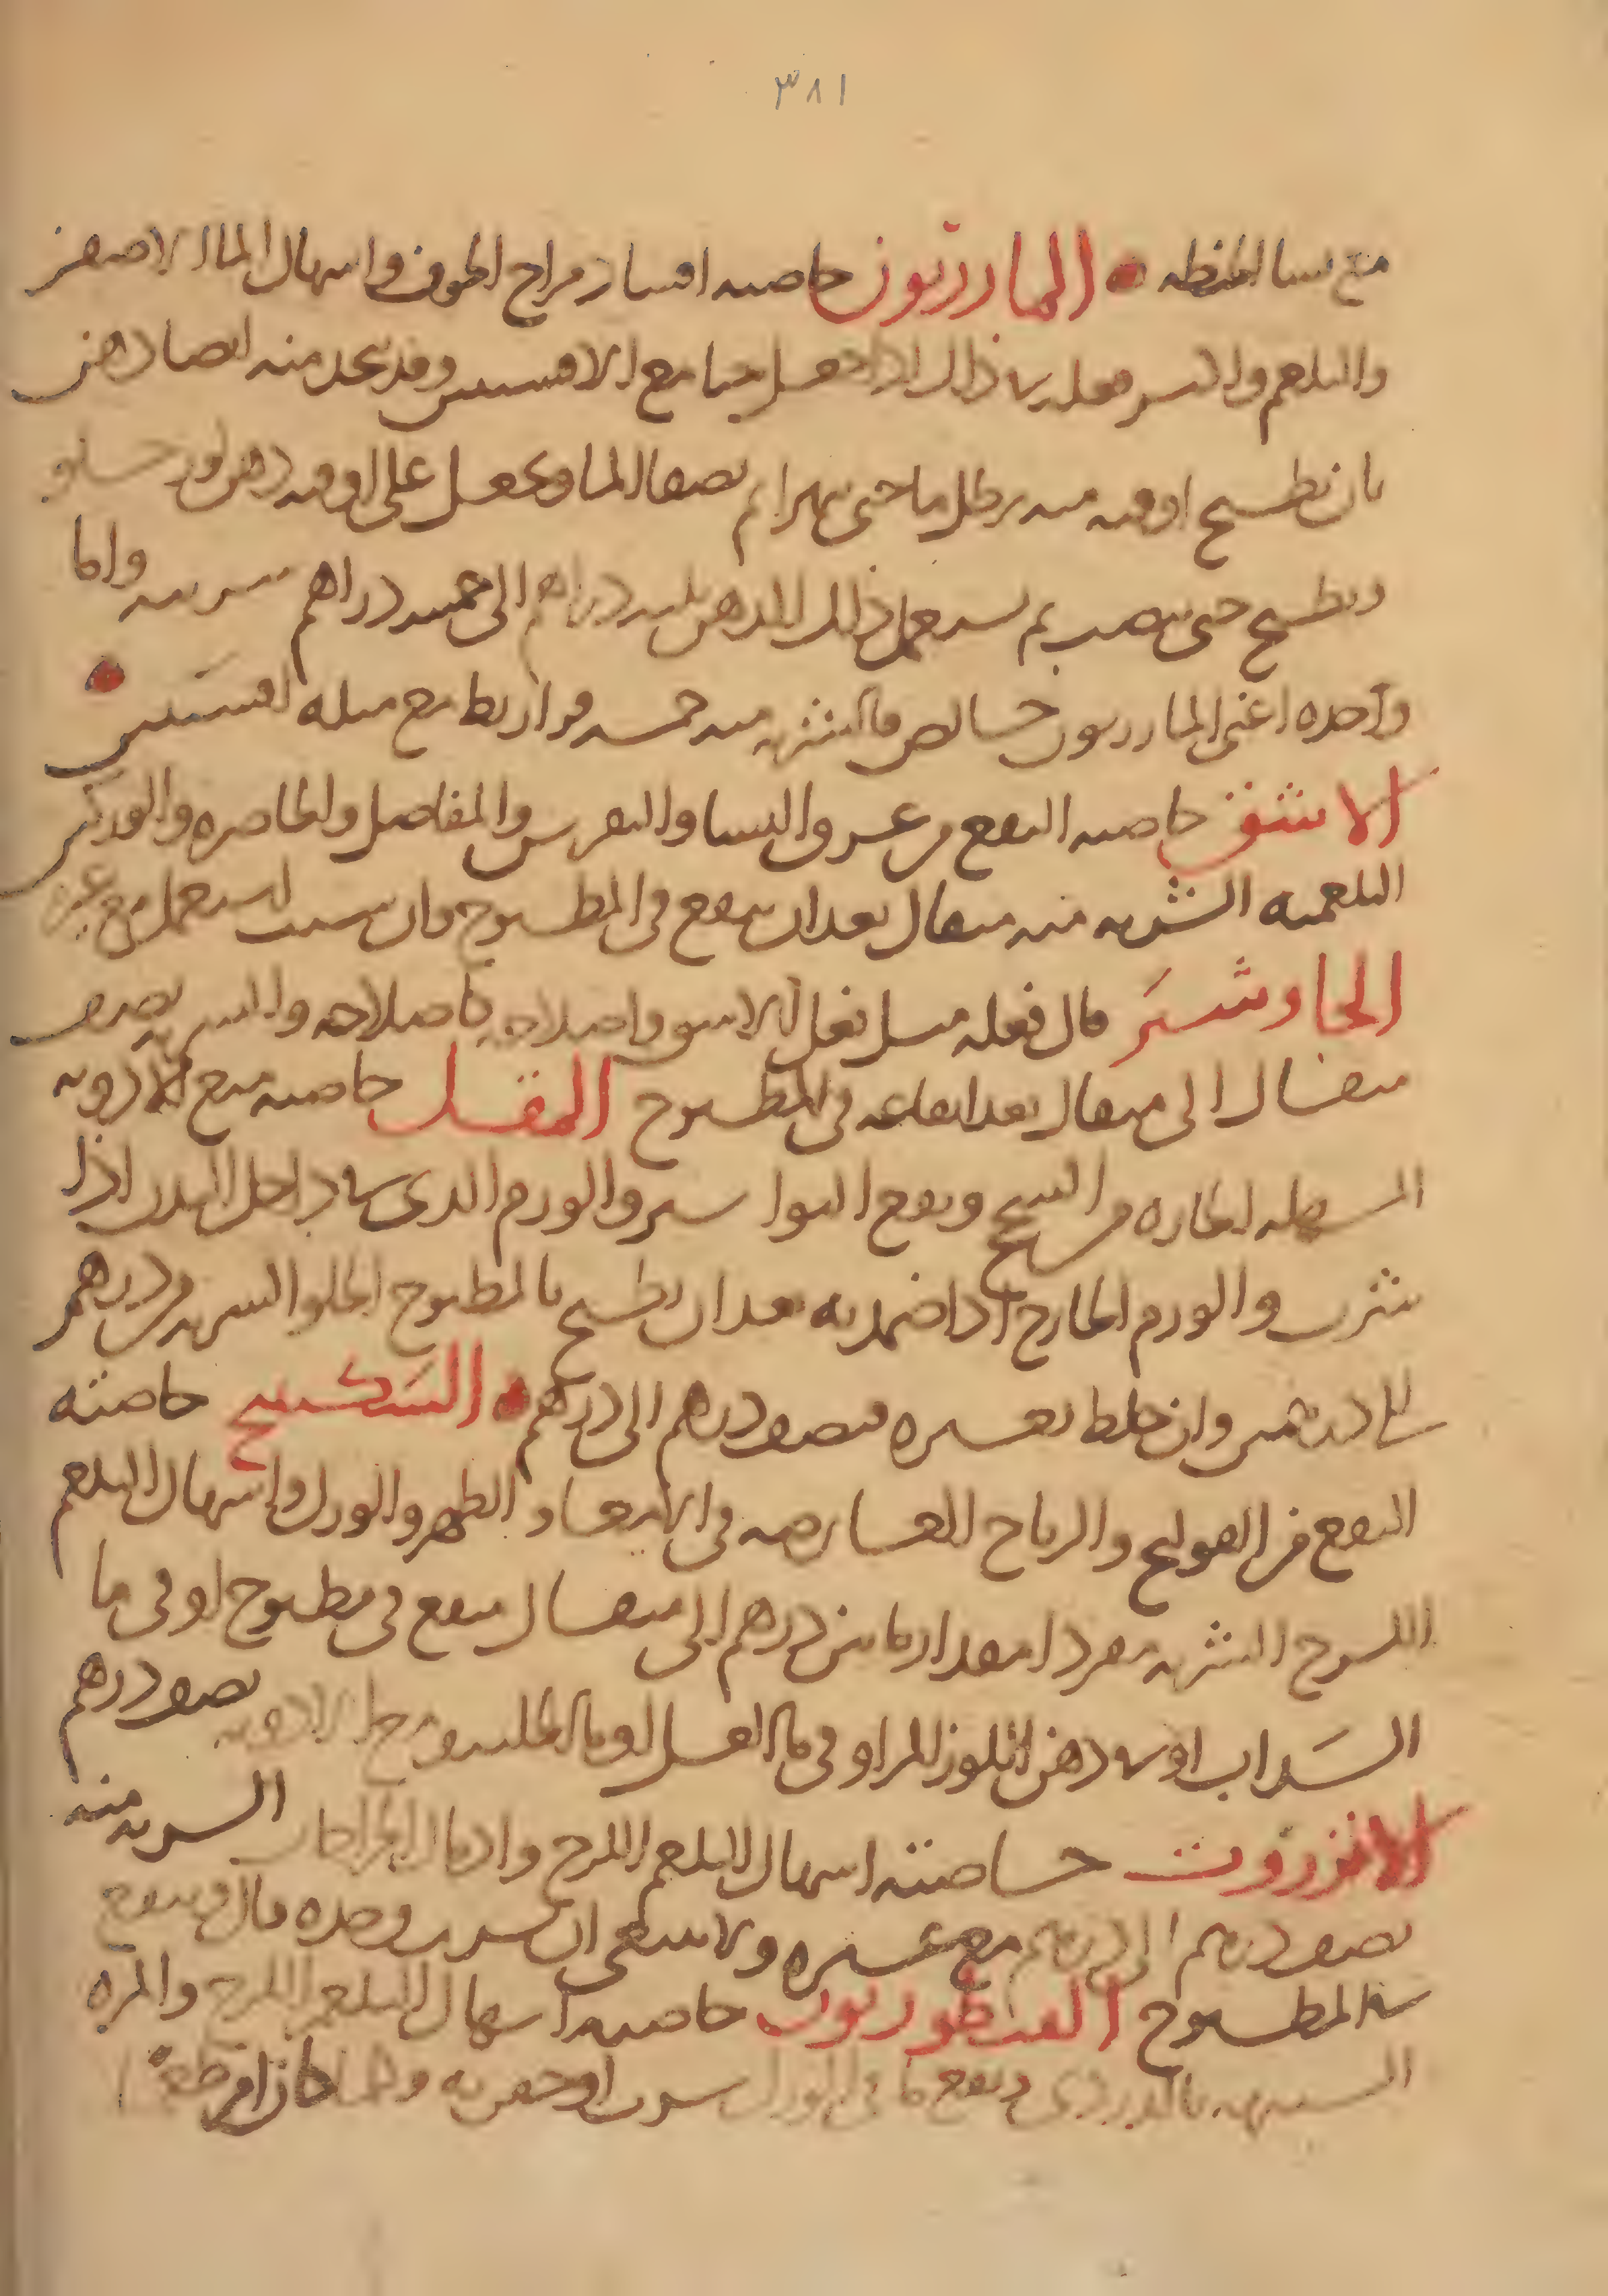 ٣٨١
مع نشا الحنطه • المازريون خاصته افساد مزاج الجوف واسهال الماء الاصفر
والبلغم واكثر فعله في ذلك اذا جعل حبا مع الافسنتين وقد يتخذ منه ايضا دهن
بان يطبخ اوقيه منه برطل ما حتى يتهرا ثم يصفا الما ويجعل على اوقيه دهن لوز حلو
ويطبخ حتى ينضب ثم يستعمل ذلك الدهن ثلثه دراهم الى خمسه دراهم شربه واما
وحده اعنى المازريون خالص فالشربه منه خمسه قراريط مع مثله افسنتين •
الاشق خاصته النفع من عرق النسا والنقرس والمفاصل والخاصره والورك
البلغميه الشربه منه مثقال بعد ان ينقع في المطبوخ وان شيت استعمل مع غيره
الجاوشير قال فعله مثل فعل الاشق واصلاحه كاصلاحه والشربه نصف
مثقال الى مثقال بعد انقاعه في المطبوخ المقل خاصته منع الادويه
المسهله الحاره من السحج وينفع البواسير والورم الذي في داخل البدن اذا
شرب والورم الخارج اذا ضمد به بعد ان يطبخ بالمطبوخ الحلو الشربه من درهم
الى درهمين وان خلط بغيره فنصف درهم الى درهم • السكبينج خاصته
النفع من القولنج والرياح العارضه في الامعاء و الظهر والورك واسهال البلغم
اللزج الشربه مفردا مقدار ما بين درهم الى مثقال ينقع في مطبوخ او في ما
السذاب او في دهن اللوز المر او في ما العسل او ما الحلبه ومع الادويه نصف درهم
الانزروت خاصته اسهال البلغم اللزج وادمال الجراحات الشربه منه
نصف درهم الى درهم مع غيره ولا ينبغى ان يشرب وحده قال وينقع
في المطبوخ القنطوريون خاصته اسهال البلغم اللزج والمره
الشبيهه بالدردي وينفع ما في الورك شرب او حقن به وكان امر